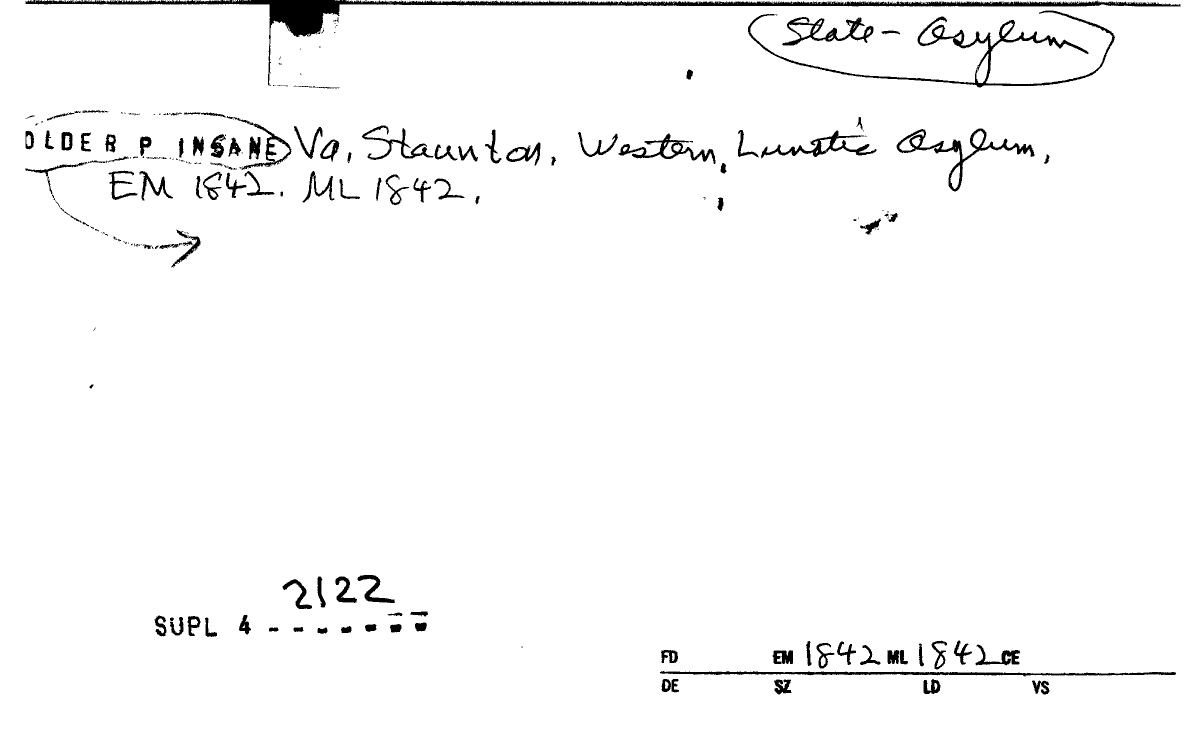 State - Asylum
OLDER P INSANE Va, Staunton, Western, Lunatic Asylum,
EM 1842. ML 1842.
2122
SUPL 4 - - - - - - -
FD EM 1842 ML 1842 CE
DE SZ LD VS